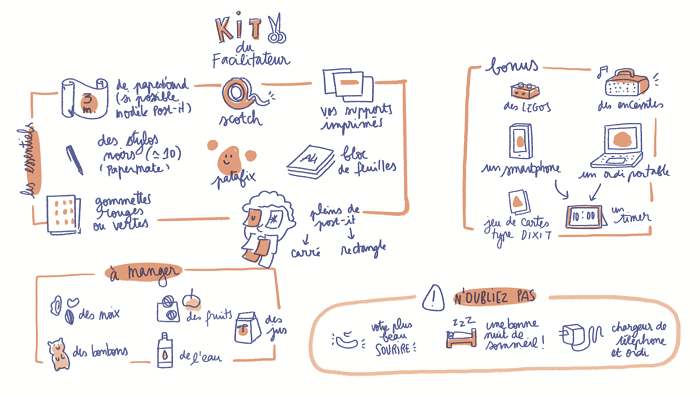 KIT
du
Facilitateur
les essentiels
3
m
de paperboard
(si possible
modèle Post-it)
scotch
vos supports
imprimés
des stylos
noirs (≃10)
(Papermate)
patafix
A4
bloc
de feuilles
gommettes
rouges
ou vertes
pleins de
post-it
carré
rectangle
bonus
des LEGOS
des enceintes
un smartphone
un ordi portable
jeu de cartes
type DIXIT
10:00
un
timer
à manger
des noix
des fruits
des
jus
des bonbons
de l'eau
N'OUBLIEZ PAS
votre plus
beau
SOURIRE
zzz
une bonne
nuit de
sommeil!
chargeur de
téléphone
et ordi